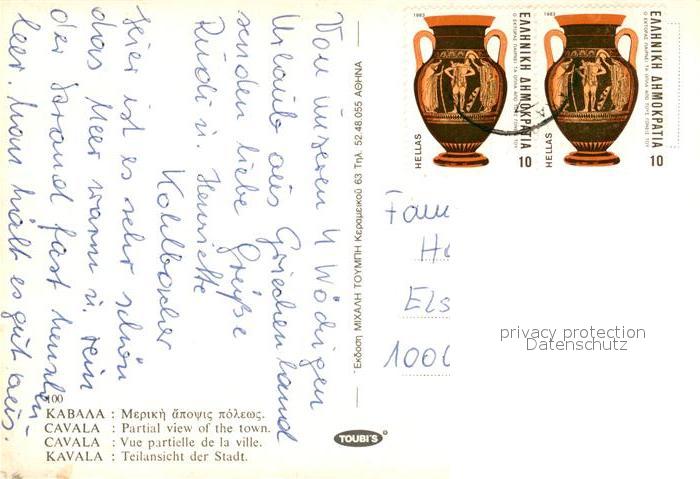 Von unseren 4 Wöchigen
Urlaub aus Griechenland
senden liebe Grüße
Rudi u. Henriette
Kohlbacher
Hier ist es sehr schön
das Meer warm u. rein
der Strand fast menschen-
leer. Man hält es gut aus.
100
ΚΑΒΑΛΑ : Μερικὴ ἄποψις πόλεως.
CAVALA : Partial view of the town.
CAVALA : Vue partielle de la ville.
KAVALA : Teilansicht der Stadt.
Ἔκδοση ΜΙΧΑΛΗ ΤΟΥΜΠΗ Κεραμεικοῦ 63 Τηλ. 52.48.055 ΑΘΗΝΑ
TOUBI'S
1983
HELLAS
ΕΛΛΗΝΙΚΗ ΔΗΜΟΚΡΑΤΙΑ
10
1983
HELLAS
ΕΛΛΗΝΙΚΗ ΔΗΜΟΚΡΑΤΙΑ
10
Fam
Els
1000
privacy protection
Datenschutz